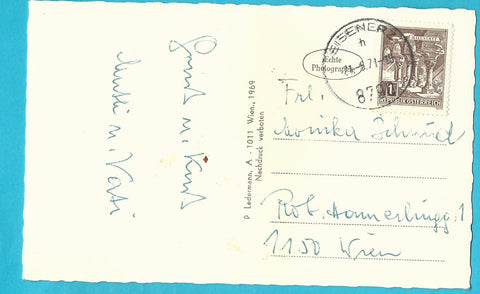 Gruß u. Kuß
Mutti u. Vati
P Ledermann, A - 1011 Wien, 1969
Nachdruck verboten
Echte
Photographie
EISENER
h
9.71
879
1
REPUBLIK ÖSTERREICH
Frl.
Monika Schmid
Rob. Hamerlingg. 1
1150 Wien